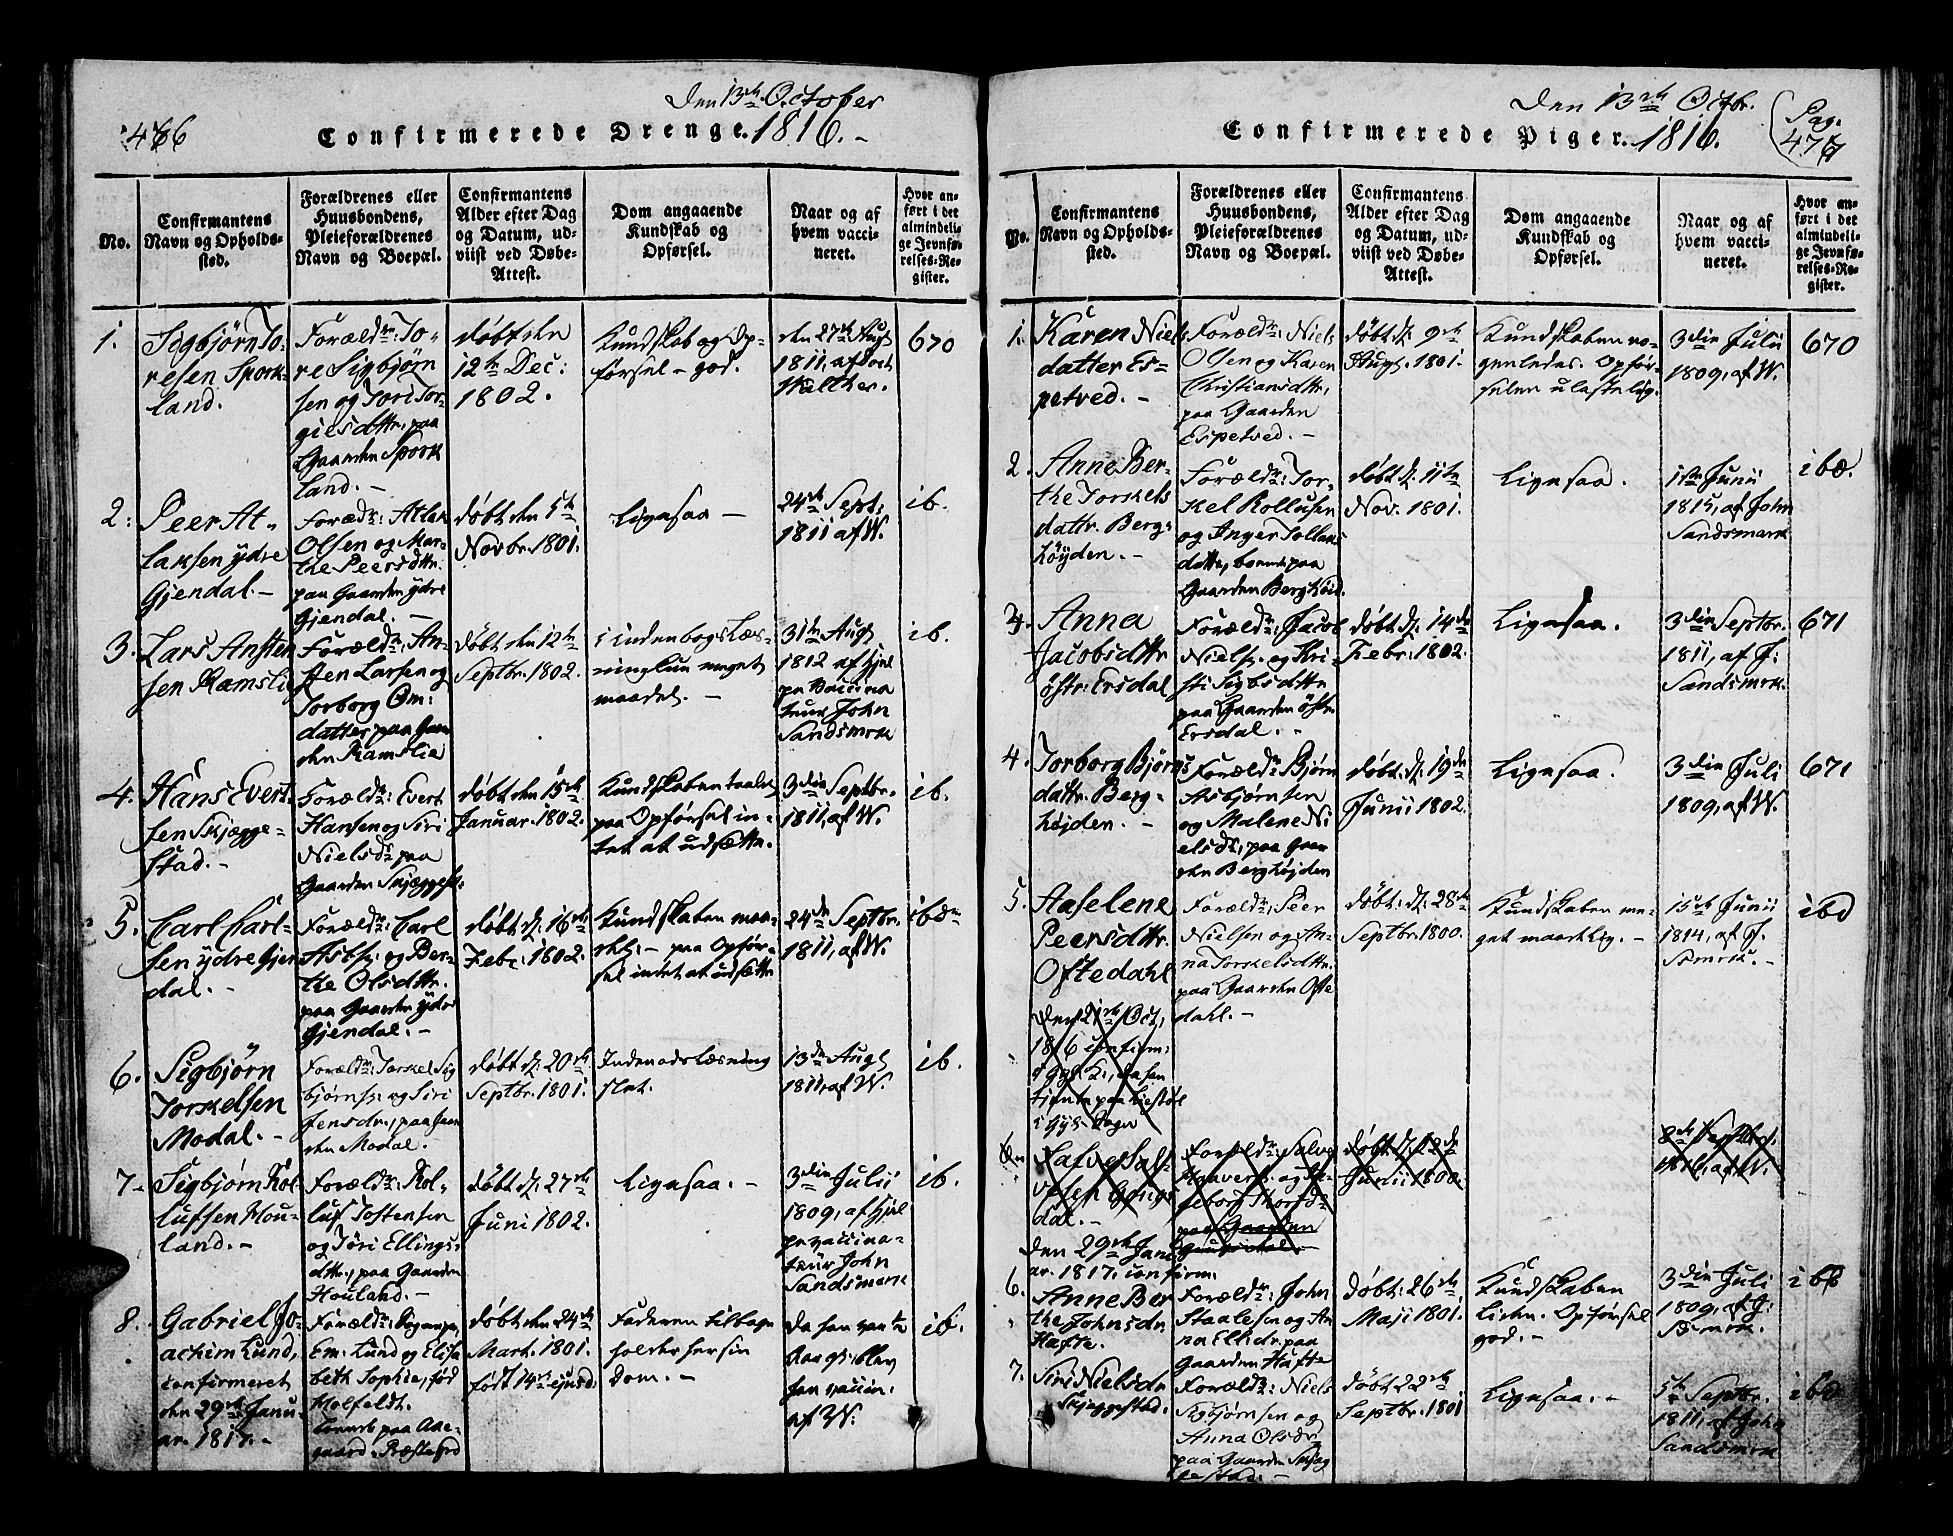 Den 13de October
476
Confirmerede Drenge. 1816.-
No.
Confirmantens
Navn og Opholds-
sted.
Forældrenes eller
Huusbondens,
Pleieforældrenes
Navn og Boepæl.
Confirmantens
Alder efter Dag
og Datum, ud-
viist ved Døbe-
Attest.
Dom angaaende
Kundskab og
Opførsel.
Naar og af
hvem vacci-
neret.
Hvor an-
ført i det
almindeli-
ge Jevnfø-
relses-Re-
gister.
1.
Sigbjørn To-
resen Spork-
land.
Forældr: To-
re Sigbjørn
sen og Tori Tor-
giesdttr, paa
Gaarden Spork
land. -
døbt den
12te Dec:
1802.
Kundskab og Op-
førsel - god.
den 27de Aug
1811, af
Walther.
670
2.
Peer At-
laksen ydre
Gjendal. -
Foræld: Atlak
Olsen og Mar-
the Peersdttr.
paa Gaarden ydre
Gjendal. -
døbt den 5te
Novbr. 1801.
Ligesaa -
24de Sept:
1811 af W.
ib.
3.
Lars Ansten
sen Ramslie
Forældr: An-
sten Larsen og
Torborg Om:
datter paa Gaar
den Ramslie
døbt den 12te
Septbr. 1802.
i indenbogs Læs-
ning kun meget
maadel. -
31te Aug
1812 af Hjel
pe Vaccina
teur John
Sandsmark
ib.
4.
Hans Evert-
sen Skjægge-
stad. -
Forældr: Evert
Hansen og Siri
Nielsdr paa
Gaarden Skjæggest:
døbt den 15de
Januar. 1802.
Kundskaben taalel
paa Opførsel in-
tet at udsætte.
3die Septbr.
1811, af W.
ib.
5.
Carl Carl-
sen ydre Gjen
dal. -
Forældr: Carl
Asbs: og Ber-
the Olsdttr.
paa Gaarden ydre
Gjendal. -
døbt d. 16de
Febr: 1802.
Kundskaben maa-
- paa Opfør-
sel intet at udsætte
24de Septbr.
1811, af W.
ibdm
6.
Sigbjørn
Torkelsen
Modal. -
Forældr: Torkel Sig
bjørns: og Siri
Jensdr., paa Gaar
den Modal.
døbt d. 20de
Septbr. 1801.
Indenadslæsning
slet.
13de Aug
1811, af W.
ib.
7.
Sigbjørn Rol
lufsen Hou-
land. -
Forældr: Rol-
luf Tostensen
og Tori Ellings:
dttr., paa Gaarden
Houland. -
døbt d. 27de
Juni 1802.
Ligesaa. -
3die Julii
1809, af Hjel
pevaccina-
teur John
Sandsmark
ib.
8.
Gabriel Jo-
achim Lund,
confirmeret
den 29de Janu-
ar. 1817. -
Forældr:
Em: Lund og Elisa
beth Sophie, fød
Holfeldt.
paa Aae-
gaard. Præstegrd
døbt den 24de
Mart. 1801.
født 14de ejusd.
Faderen tilbage
holder her sin
Dom. -
Da han var
Aar gl: blev
han vaccin:
af W:
ib.
Den 13de Octbr.
Pag.
477
Confirmerede Piger. 1816.
No.
Confirmantens
Navn og Opholds-
sted.
Forældrenes eller
Huusbondens,
Pleieforældrenes
Navn og Boepæl.
Confirmantens
Alder efter Dag
og Datum, ud-
viist ved Døbe-
Attest.
Dom angaaende
Kundskab og
Opførsel.
Naar og af
hvem vacci-
neret.
Hvor an-
ført i det
almindeli-
ge Jevnfø-
relses-Re-
gister.
1.
Karen Niels
datter Es-
petved. -
Forældr: Niels
Olsen og Karen
Christiansdttr,
paa Gaarden
Espetved. -
døbt d. 9de
Aug. 1801.
Kundskaben no-
genledes. Opfør-
selen ulastelig.
3die Julii
1809, af W.
670
2.
Anne Ber-
the Torkels
dattr. Berg-
høyden. -
Forældr: Tor-
kel Rollufsen
og Inger Tollaks
dattr, boende paa
Gaarden Berghøid.
døbt d. 11te
Nov. 1801.
Ligesaa.
1ste Junii
1815, af John
Sandsmark
ibd.
3.
Anna
Jacobsdttr
östr: Ersdal
Forældr: Jacob
Niels: og Kri-
sti Sigbsdttr
paa Gaarden östr
Ersdal. -
døbt d. 14de
Febr: 1802.
Ligesaa.
3die Septbr.
1811, af J:
Sandsmrk.
671
4.
Torborg Bjørns
dattr. Berg-
højden. -
Forældr: Bjørn
Asbjørnsen
og Malene Ni
elsdr, paa Gaar
den Berghøjden
døbt d. 19de
Junii 1802.
Ligesaa.
3die Juli
1809, af W.
671
5.
Aaselene
Peersdttr.
Oftedahl
Forældr: Peer
Nielsen og An-
na Torkelsdttr.
paa Gaarden Ofte
dahl. -
døbt d. 28de
Septbr. 1800.
Kundskaben me-
get maadelig. -
15de Junii
1814, af J.
Smrk. -
ibd
Den 21de Oct,
1816 confirm:
tjente paa Liestøl
6.
Salve Salv-
esen Gongs
dal. -
Forældr: Salve
Haavers: og In-
geborg Thorsdr
paa Gaarden
døbt d. 22de
Junii 1800.
8de Septbr.
1811, af W.
Den 29de Janu
ar. 1817. confirm:
6.
Anne Ber
the Johnsdr
Hafte.
Forældr: John
Staalesen og An
na Ellidr, paa
Gaarden Hafte
døbt. 26de
Maji 1801.
Kundskaben
Opførsel
god. -
3die Juli
1809, af J:
Smrk. -
ibd
7.
Siri Nielsdr
Skjeggestad.
Forældr: Niels
Sigbjørnsen og
Anna Olsdr
paa Gaarden Skjeg
gestad. -
døbt 22de
Septbr. 1801
Ligesaa. -
5te Septbr.
1811, af John
Sandsmrk
ibd